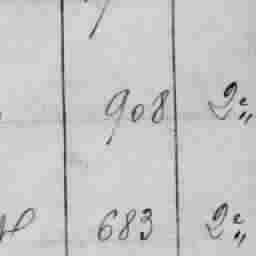 908 2 "
683 2 "